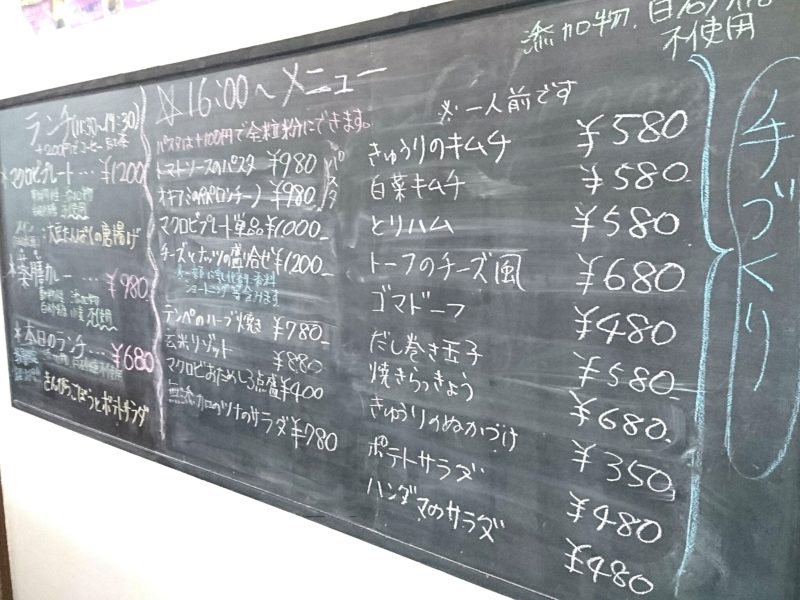 ランチ(11:30〜14:30)
+200円でコーヒー
マクロビプレート…¥1200
大豆たんぱくの唐揚げ
*薬膳カレー…¥980
*本日のランチ…¥680
きんぴらごぼうとポテトサラダ
☆16:00〜メニュー
パスタは+100円で全粒粉にできます。
トマトソースのパスタ ¥980
オキアミのペペロンチーノ ¥980
パスタ
マクロビプレート単品 ¥1000-
チーズとナッツの盛り合せ ¥1200-
テンペのハーブ焼き ¥780-
玄米リゾット ¥880
マクロビおためし3点盛 ¥400
無添加のツナのサラダ ¥780
※一人前です
きゅうりのキムチ ¥580
白菜キムチ ¥580-
とりハム ¥580
トーフのチーズ風 ¥680
ゴマドーフ ¥480
だし巻き玉子 ¥580-
焼きらっきょう ¥680-
きゅうりのぬかづけ ¥350
ポテトサラダ ¥480
ハンダマのサラダ ¥480
添加物、
不使用
手づくり